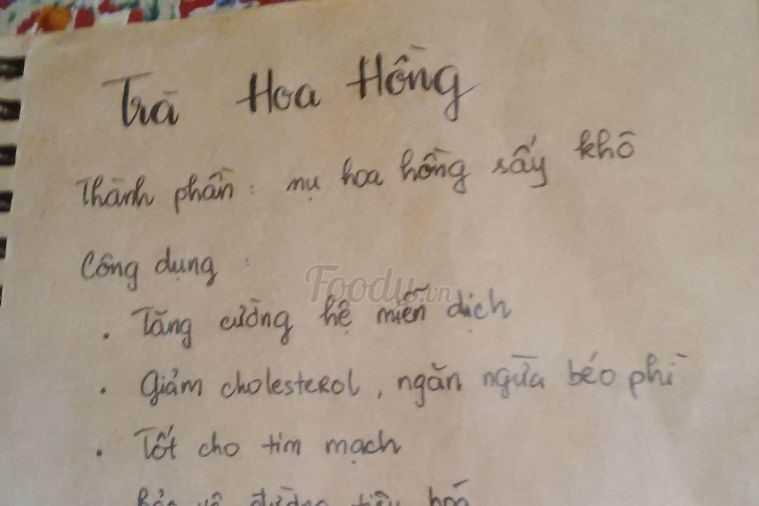 Trà Hoa Hồng
Thành phần: nụ hoa hồng sấy khô
Công dụng:
Foody.vn
• Tăng cường hệ miễn dịch
• Giảm cholesterol, ngăn ngừa béo phì
• Tốt cho tim mạch
Bảo vệ đường tiêu hoá